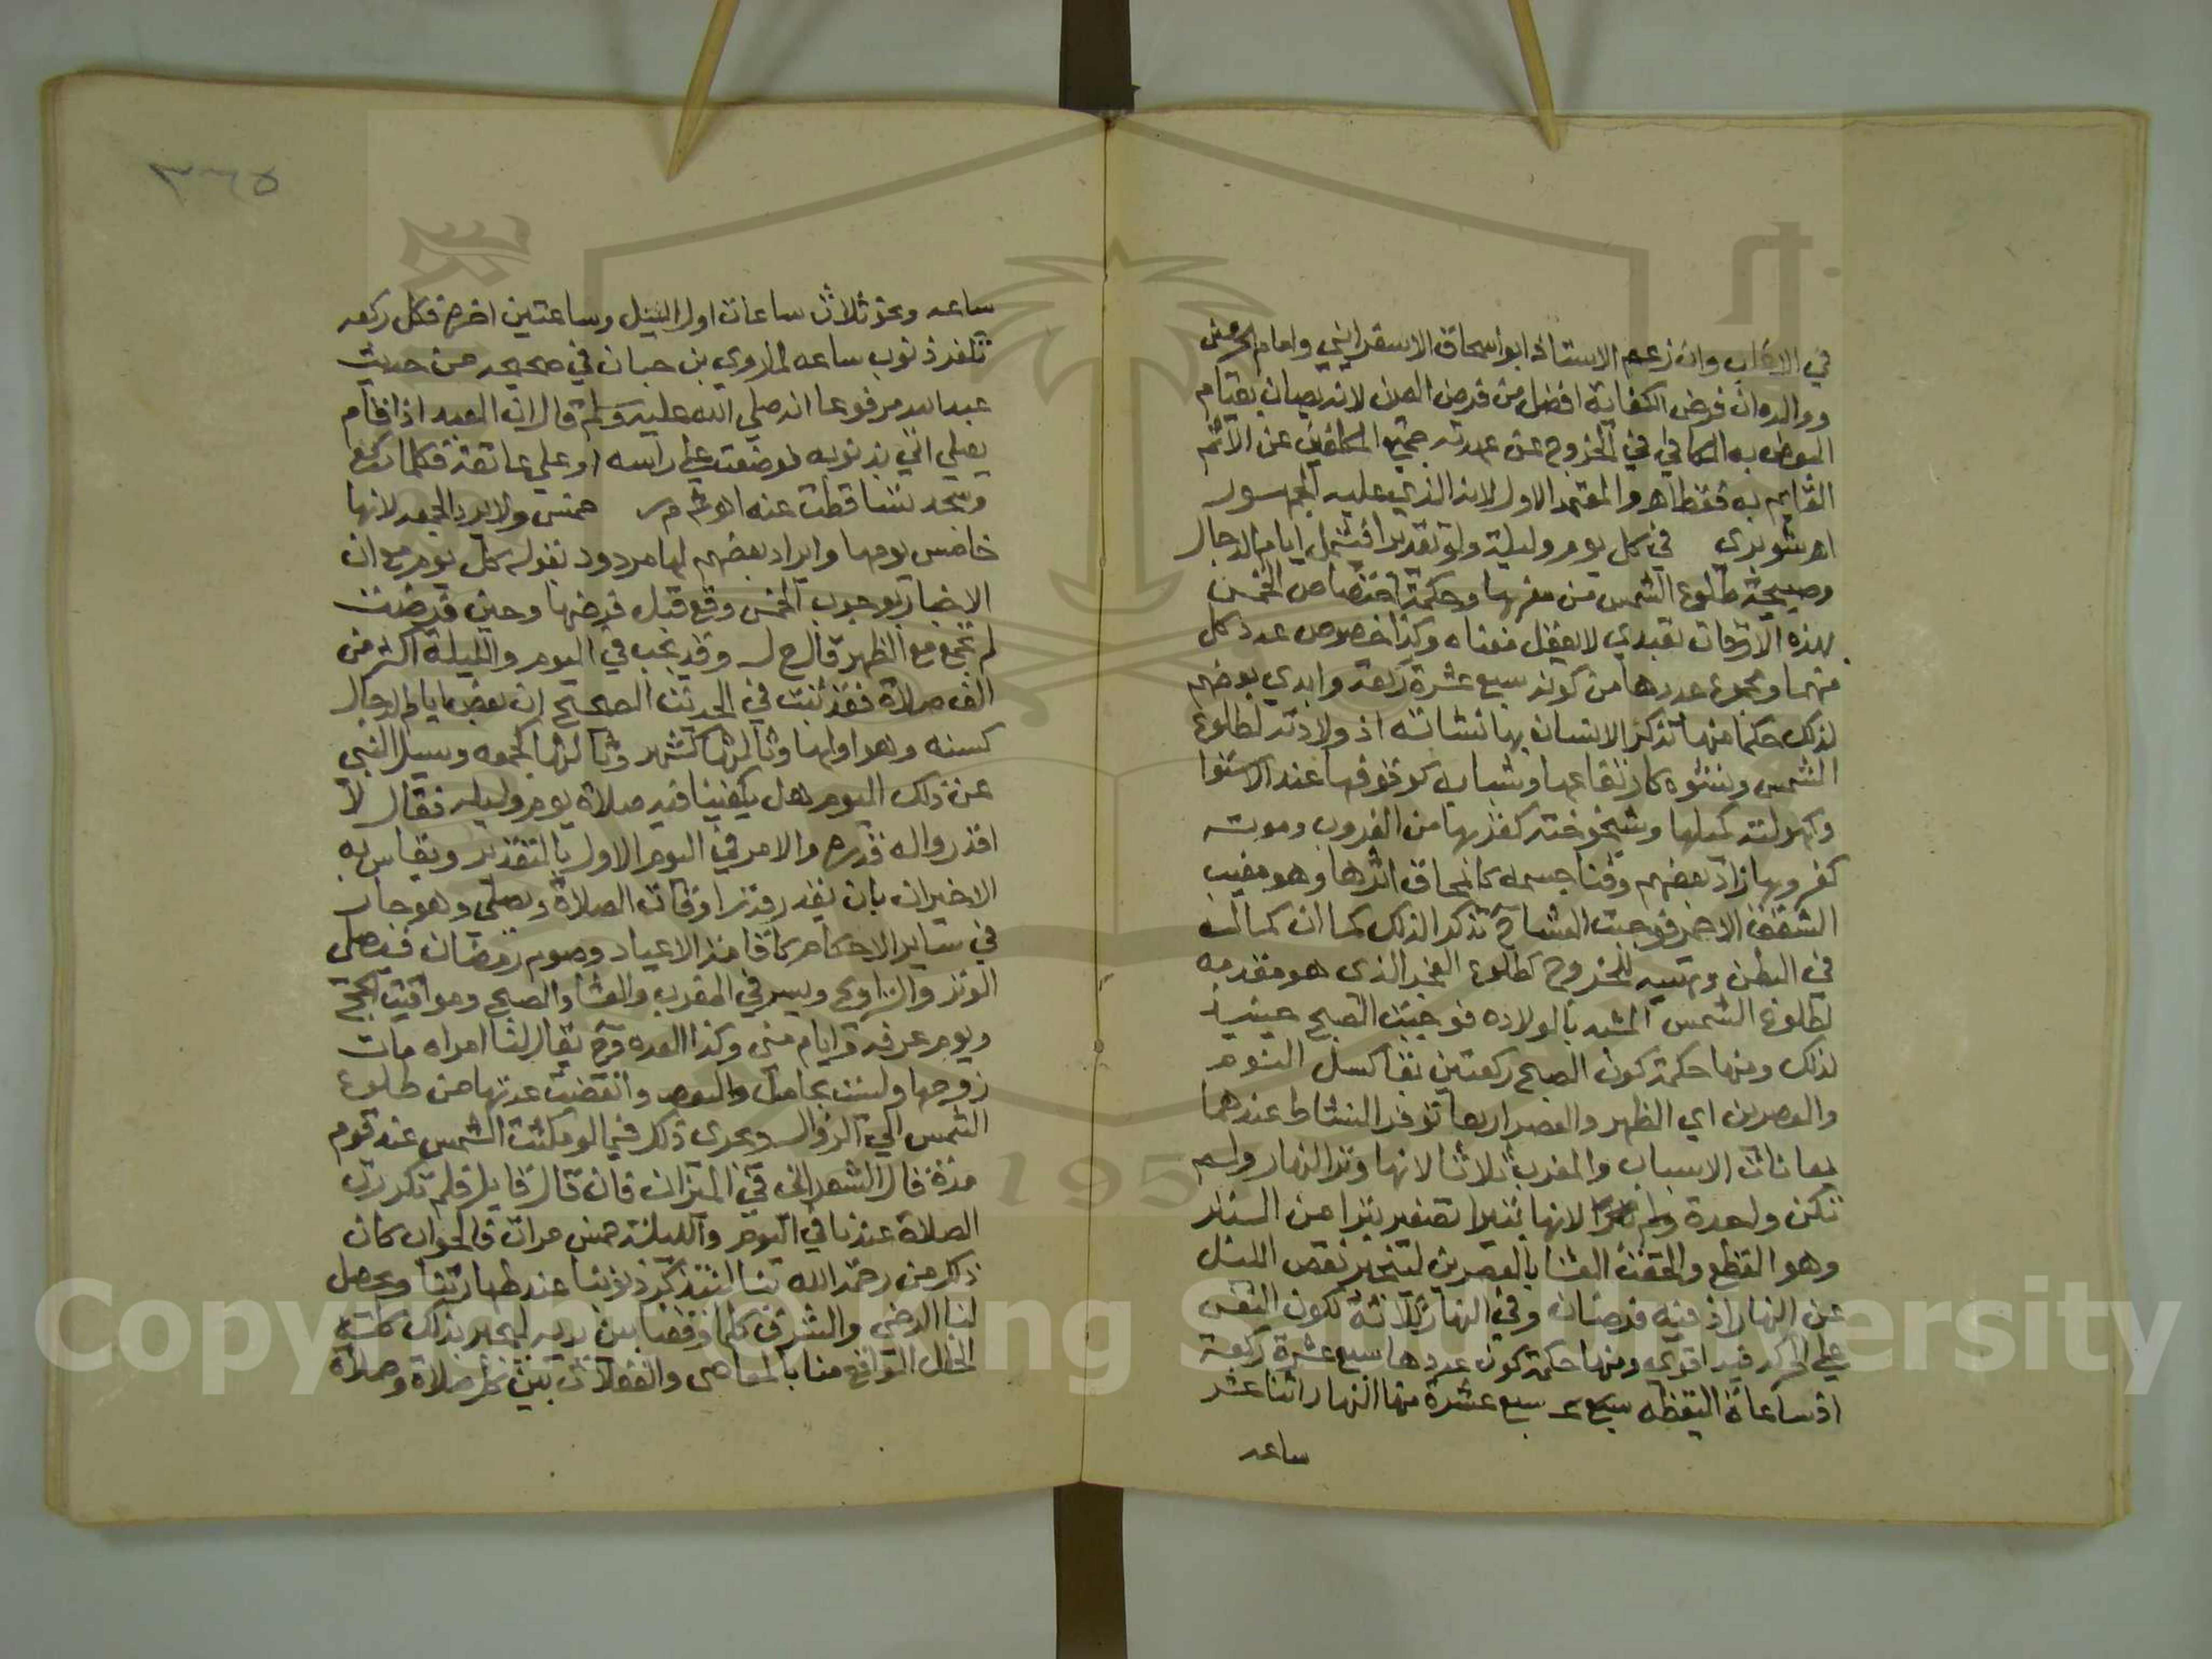 في الاداب وان زعم الاستاذ ابو اسحاق الاسفرايني وامام الحرمين
ووالده ان فرض الكفاية افضل من فرض العين لانه يصان بقيام
البعض به الكافي في الخروج عن عهدته جميع المكلفين عن الاثم
القايم به فقط اهـ والمعتمد الاول لانه الذي عليه الجمهور
اهـ شوبري في كل يوم وليلة ولو تقديرا فيشمل ايام الدجال
وصبيحة طلوع الشمس من مغربها وحكمة اختصاص الخمس
بهذه الاوقات تعبدي لا يعقل معناه وكذا خصوص عدد كل
منهما ومجموع عددها من كونه سبع عشرة ركعة وابدي بعضهم
لذلك حكما منها تذكر الانسان بها نشاته اذ ولادته لطلوع
الشمس ونشوه كارتفاعها وشبابه كوقوفها عند الاستوا
وكهولته كميلها وشيخوخته كقربها من الغروب وموته
كغروبها زاد بعضهم وفنا جسمه كانمحاق اثرها وهو مغيب
الشفق الاحمر فوجبت العشا ح تذكرا لذلك كما ان كماله
في البطن وتهييه للخروج كطلوع الفجر الذي هو مقدمه
لطلوع الشمس المشبه بالولاده فوجبت الصبح حينيذ
لذلك ومنها حكمة كون الصبح ركعتين بقا كسل النوم
والعصرين اي الظهر والعصر اربعا توفر النشاط عندهما
بمعانات الاسباب والمغرب ثلاثا لانها وتر النهار ولم
تكن واحدة ولم لانها بتيرا تصغير بترا من البتر
وهو القطع والحقت العشا بالعصرين لتنجبر نقص الليل
عن النهار اذ فيه فرضان وفي النهار ثلاثة لكون النفس
علي الحركة فيه اقوي ومنها حكمة كون عددها سبع عشرة ركعة
اذ ساعاة اليقظه سبع عشرة منها النهار اثنا عشر
ساعه
٣٦٥
ساعه ونحو ثلاث ساعات اول الليل وساعتين اخره فكل ركعه
تكفر ذنوب ساعه لما روي بن حبان في صحيحه من حديث
عبد الله مرفوعا انه صلي الله عليه وسلم قال ان العبد اذا قام
يصلي اتي بذنوبه فوضعت علي راسه او علي عاتقه فكلما ركع
وسجد تساقطت عنه اهـ خمس ولا يرد الجمعه لانها
خامس يومها وايراد بعضهم لها مردود بقوله كل يوم مع ان
الاخبار بوجوب الخمس وقع قبل فرضها وحين فرضت
لم تجمع مع الظهر قال ح ل وقد يجب في اليوم والليلة اكثر من
الف صلاة فقد ثبت في الحديث الصحيح ان بعض ايام الدجال
كسنه وهو اولها وثانيها كشهر وثالثها كجمعه وسيل النبي
عن ذلك اليوم هل يكفينا فيه صلاة يوم وليله فقال لا
اقدروا له قدره والامر في اليوم الاول بالتقدير ويقاس به
الاخيران بان يقدر قدر اوقات الصلاة وتصلي وهو جار
في ساير الاحكام كاقامة الاعياد وصوم رمضان فيصلي
الوتر والتراويح ويسر في المغرب والعشا والصبح ومواقيت الحج
ويوم عرفه وايام مني وكذا العده وح يقال لنا امراه مات
زوجها وليست بحامل وانقضت عدتها من طلوع
الشمس الي الزوال ويجري ذلك فيما لو مكثت الشمس عند قوم
مدة قال الشعراني في الميزان فان قال قايل فلم تكررت
الصلاة عندنا في اليوم والليلة خمس مرات فالجواب كان
ذلك من رحمة الله بنا لنتذكر ذنوبنا عند طهارتنا ويحصل
لنا الرضي والشرف كلما وقفنا بين يديه ليجبر بذلك كله
الخلل الواقع منا بالمعاصي والغفلات بين كل صلاة وصلاة